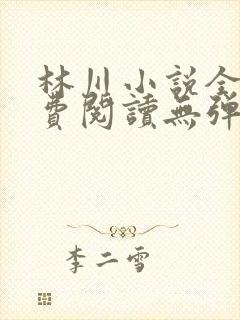 林川小説全
費閱讀無彈
李二雪